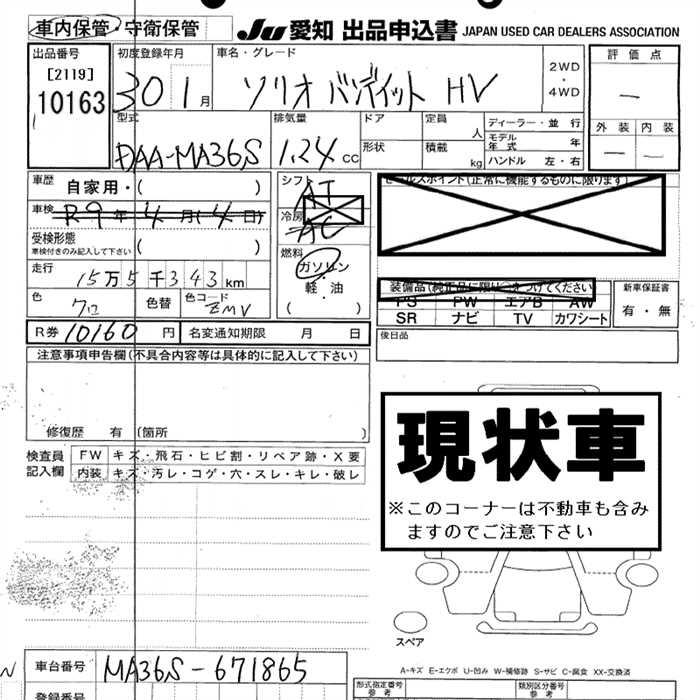 車内保管・守衛保管
JU 愛知 出品申込書 JAPAN USED CAR DEALERS ASSOCIATION
出品番号
[2119]
10163
初度登録年月
30 1 月
車名・グレード
ソリオ バンディット HV
2WD
・
4WD
評価点
—
外装 内装
— —
型式
DAA-MA36S
排気量
1.24 CC
ドア
形状
定員 人
積載 kg
ディーラー・並行
モデル年式 年
ハンドル 左・右
車歴 自家用・( )
車検 R9年4月(4日)
受検形態
車検付きのみ記入して下さい ( )
走行 15万5千343km
色 クロ
色替
色コード ZMV
シフト AT
冷房 AC
燃料
ガソリン
・
軽・油
( )
セールスポイント(正常に機能するものに限ります)
装備品(純正品に限り○をつけてください)
PS PW エアB AW
SR ナビ TV カワシート
新車保証書
有・無
R券 10160 円
名変通知期限 月 日
後日品
注意事項申告欄(不具合内容等は具体的に記入して下さい)
修復歴 有 〔箇所 〕
検査員
記入欄
FW キズ・飛石・ヒビ割・リペア跡・X要
内装 キズ・汚レ・コゲ・穴・スレ・キレ・破レ
現状車
※このコーナーは不動車も含み
ますのでご注意下さい
スペア
A-キズ E-エクボ U-凹み W-補修跡 S-サビ C-腐食 XX-交換済
車台番号 MA36S-671865
登録番号
型式指定番号
参考
類別区分番号
参考